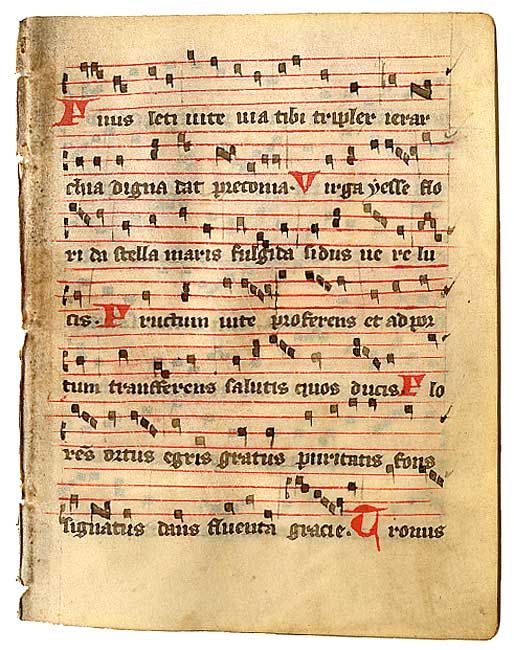 Finis leti uite uia tibi tripler ierar
chia digna dat preconia. Virga yesse flo
ri da stella maris fulgida sidus ue re lu
cis. Fructum uite proferens et ad por
tum transferens salutis quos ducis. Flo
res ortus egris gratus puritatis fons
signatus dans fluenta gracie. Tronus